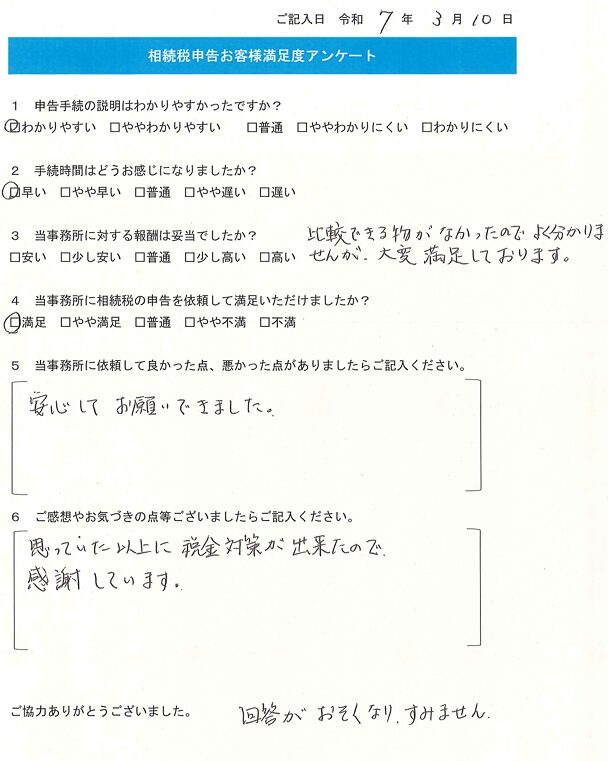 ご記入日 令和 7 年 3 月 10 日
相続税申告お客様満足度アンケート
1 申告手続の説明はわかりやすかったですか?
□わかりやすい □ややわかりやすい □普通 □ややわかりにくい □わかりにくい
2 手続時間はどうお感じになりましたか?
□早い □やや早い □普通 □やや遅い □遅い
3 当事務所に対する報酬は妥当でしたか?
□安い □少し安い □普通 □少し高い □高い
比較できる物がなかったのでよく分かりま
せんが、大変満足しております。
4 当事務所に相続税の申告を依頼して満足いただけましたか?
□満足 □やや満足 □普通 □やや不満 □不満
5 当事務所に依頼して良かった点、悪かった点がありましたらご記入ください。
安心してお願いできました。
6 ご感想やお気づきの点等ございましたらご記入ください。
思っていた以上に税金対策が出来たので、
感謝しています。
ご協力ありがとうございました。
回答がおそくなり、すみません。